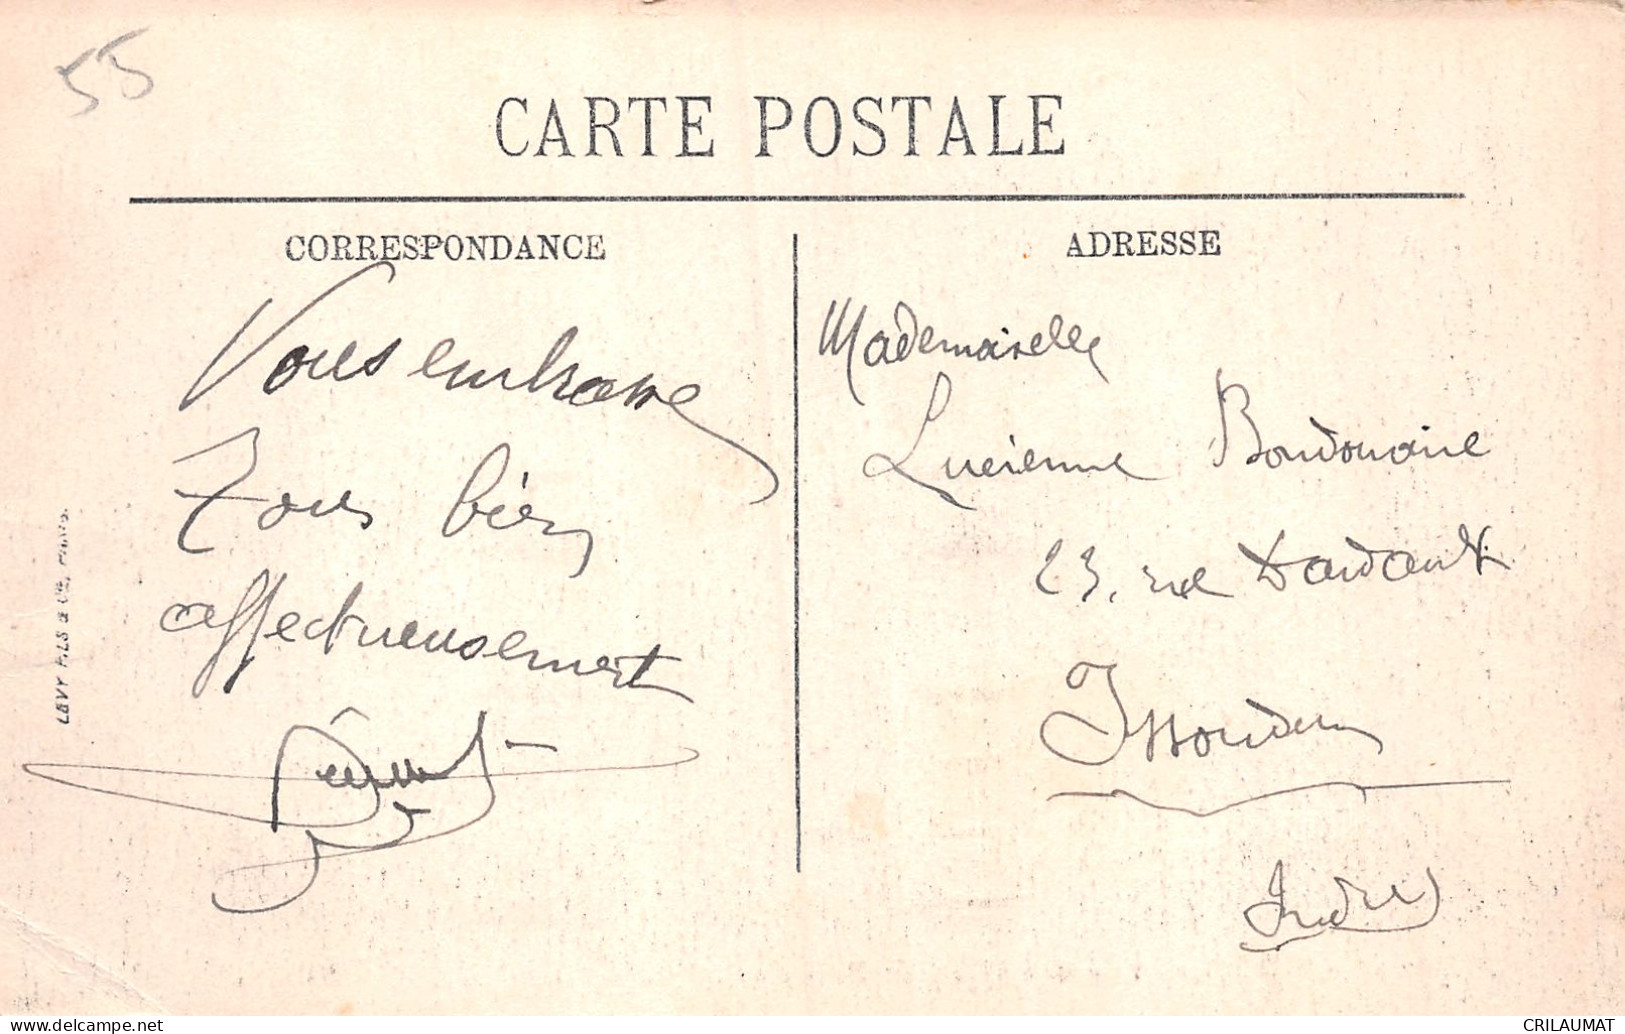 55
CARTE POSTALE
CORRESPONDANCE
Vous embrasse
Tous bien
affectueusement
LEVY FILS & Cie, PARIS.
ADRESSE
Mademoiselle
Lucienne Bourdonnaire
23, rue Dardault
Issoudun
Indre
www.delcampe.net
CRILAUMAT